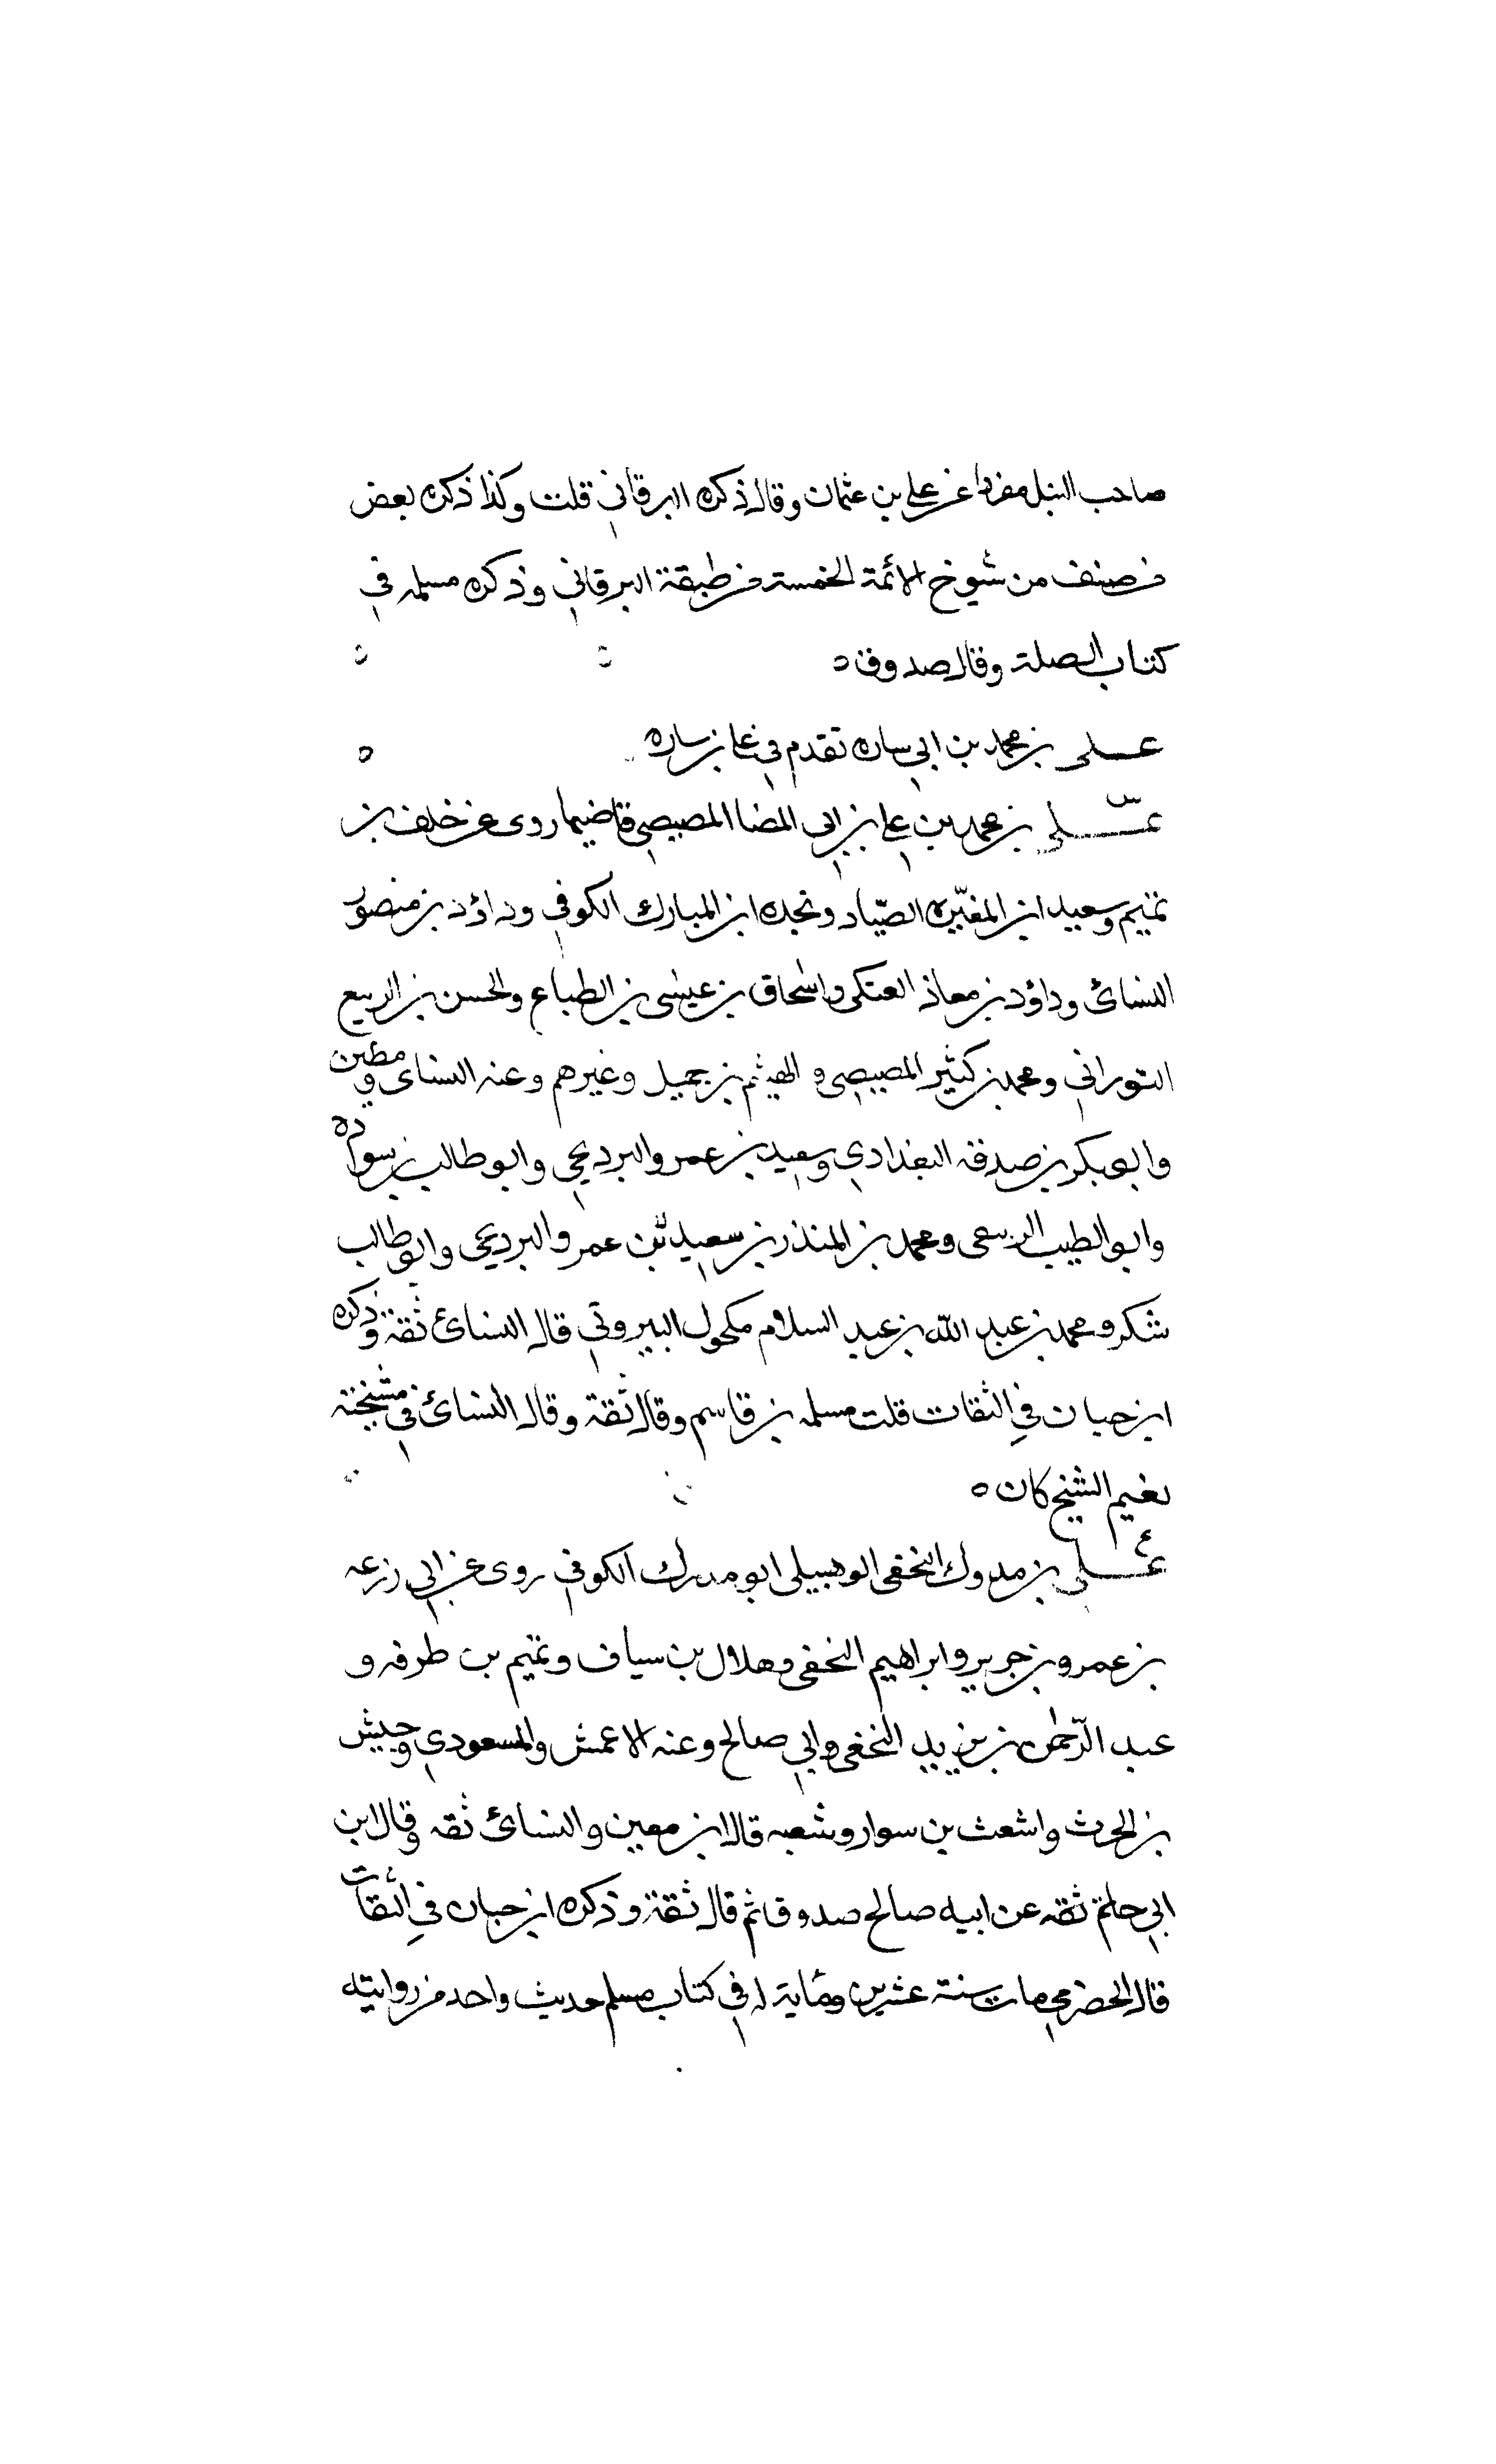 صاحب النبل مفردا عن علي بن عثمان وقال ذكره البرقاني قلت وكذا ذكره بعض
من صنف من شيوخ الائمة الخمسة من طبقة البرقاني وذكره مسلمه في
كتاب الصلة وقال صدوق ه
علي بن محمد بن ابي ساره تقدم في علي بن ساره ه
س علي بن محمد بن علي بن ابي المضا المصيصي قاضيها روى عن خلف بن
تميم وسعيد ابن المغيره الصياد ونجده ابن المبارك الكوفي وداؤد بن منصور
النسائ وداؤد بن معاذ العتكي واسحاق بن عيسى بن الطباع والحسن بن الربيع
التوراني ومحمد بن كثير المصيصي و الهيثم بن جميل وغيرهم وعنه النساى ومطين
وابو بكر بن صدقه البغدادي وسعيد بن عمرو البردعي وابو طالب بن سواده
وابو الطيب الربعي ومحمد بن المنذر بن سعيد بن عمرو البرديحى وابو طالب
شكر ومحمد بن عبد الله بن عبد السلام مكحول البيروتي قال النسائ ثقة وذكره
ابن حبان في الثقات قلت مسلمه بن قاسم وقال ثقة وقال النسائ في مشيخته
نعيم الشيخ كان ه
ع علي بن مدرك النخعى الوهبيلى ابو مدرك الكوفي روى عن ابي زرعه
بن عمرو بن جرير وابراهيم النخعى وهلال بن سياف وتميم بن طرفه و
عبد الرحمن بن يزيد النخعى وابي صالح وعنه الاعمش والمسعودي وحبيش
بن الحرث واشعث بن سوار وشعبه قال ابن معين والنسائ ثقه وقال ابن
ابي حاتم ثقه عن ابيه صالح صدوق ثم قال ثقة وذكره ابن حبان في الثقات
قال الحضرمي مات سنة عشرين ومئاية له في كتاب مسلم حديث واحد من روايته